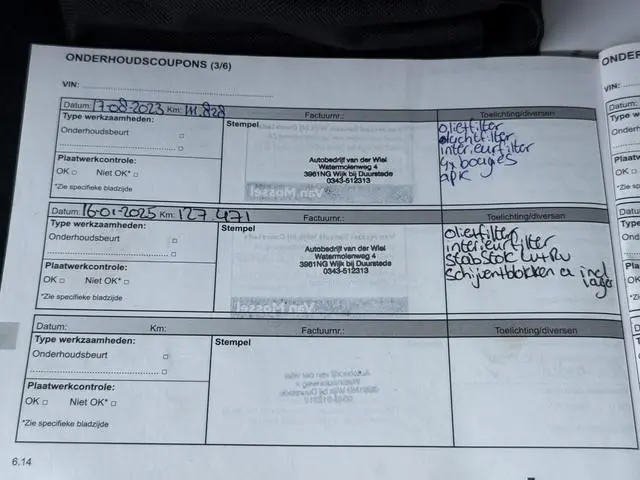 ONDERHOUDSCOUPONS (3/6)
VIN:
Datum: 17-08-2023 Km: 111.828
Factuurnr.:
Toelichting/diversen
Type werkzaamheden:
Onderhoudsbeurt
Stempel
Autobedrijf van der Wiel
Watermolenweg 4
3961NG Wijk bij Duurstede
0343-512313
Van Mossel
oliefilter
luchtfilter
interieurfilter
4x bougies
APK
Plaatwerkcontrole:
OK Niet OK*
*Zie specifieke bladzijde
Datum: 16-01-2025 Km: 127.471
Factuurnr.:
Toelichting/diversen
Type werkzaamheden:
Onderhoudsbeurt
Stempel
Autobedrijf van der Wiel
Watermolenweg 4
3961NG Wijk bij Duurstede
0343-512313
Van Mossel
oliefilter
interieurfilter
stabstok LV+RV
schijven+blokken a incl
lager
Plaatwerkcontrole:
OK Niet OK*
*Zie specifieke bladzijde
Datum: Km:
Factuurnr.:
Toelichting/diversen
Type werkzaamheden:
Onderhoudsbeurt
Stempel
Plaatwerkcontrole:
OK Niet OK*
*Zie specifieke bladzijde
6.14
ONDER
VIN: